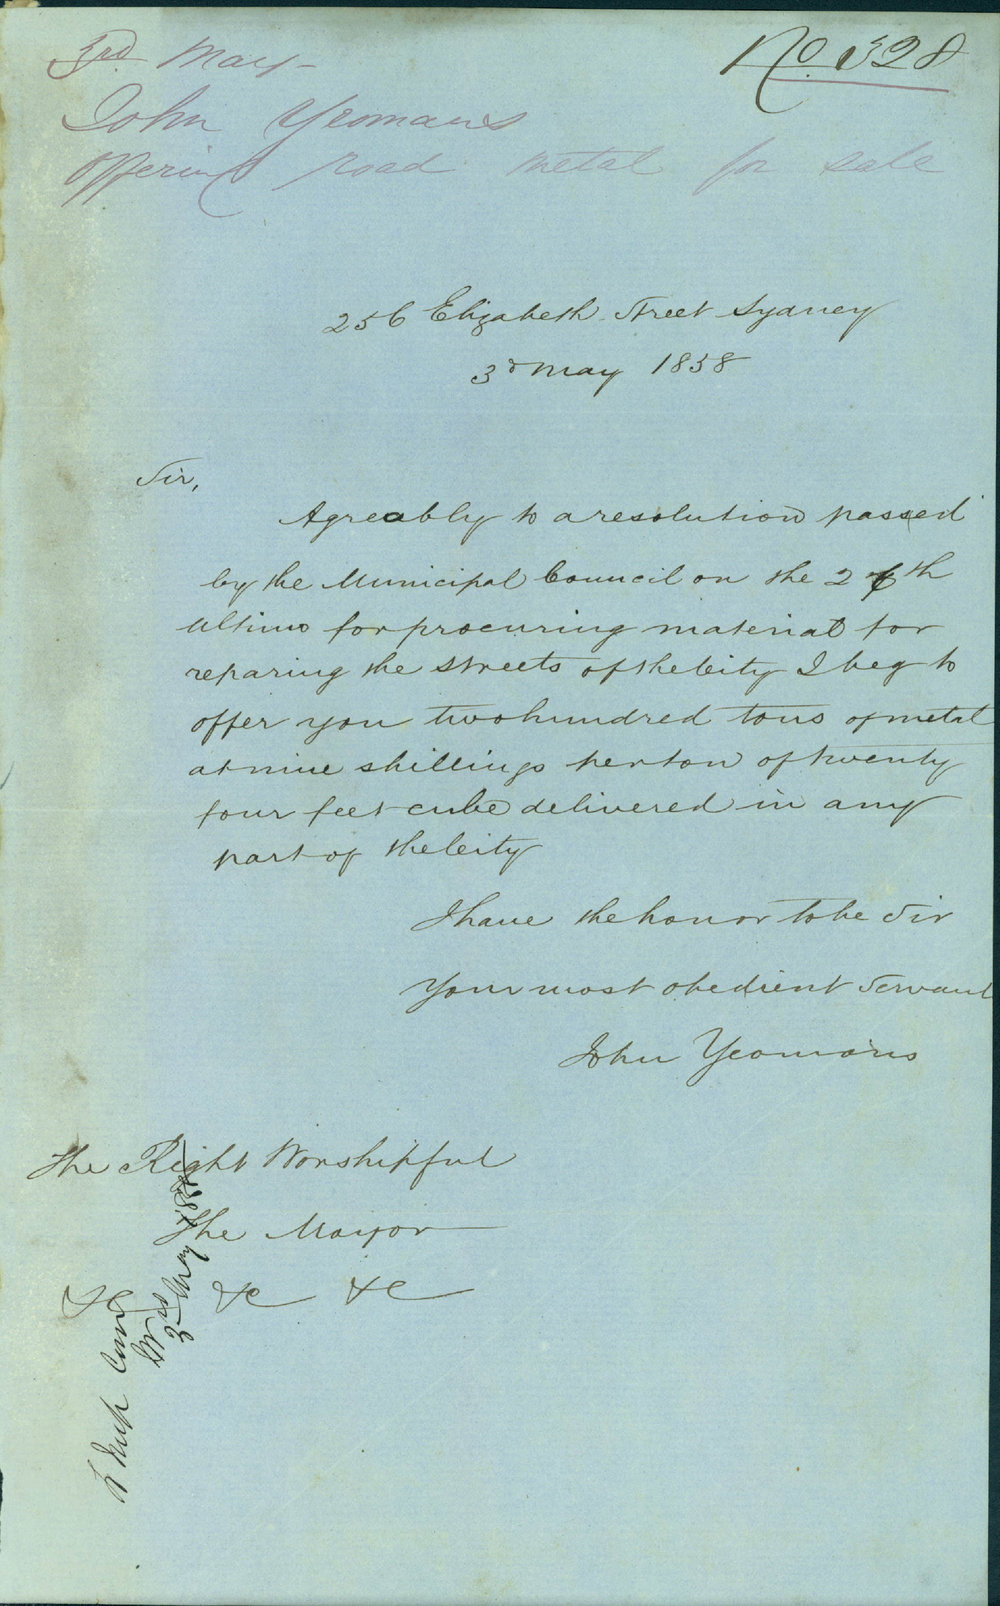 3rd May -
No 328
John Yeomans
Offering road metal for sale
256 Elizabeth Street Sydney
3d May 1858
Sir,
Agreably to a resolution passed
by the Municipal Council on the 2 th
ultimo for procuring material for
reparing the streets of the City I beg to
offer you two hundred tons of metal
at nine shillings per ton of twenty
four feet cube delivered in any
part of the City
I have the honor to be Sir
Your most obedient Servant
John Yeomans
The Right Worshipful
The Mayor
&c &c &c
3rd May 1858